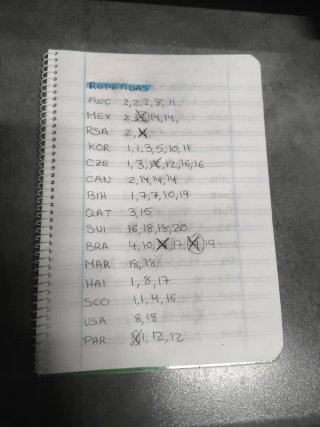 REPETIDAS
FWC 2,2,2,8,11,
MEX 2, 14,14,
RSA 2,
KOR 1,1,3,5,10,11
CZE 1,3, 12,16,16
CAN 2,14,14,14
BIH 1,7,7,10,19
QAT 3,15
SUI 16,18,18,20
BRA 4,10, 17, 19
MAR 18,18
HAI 1,8,17
SCO 1,1,4,16
USA 8,18
PAR 1,12,12